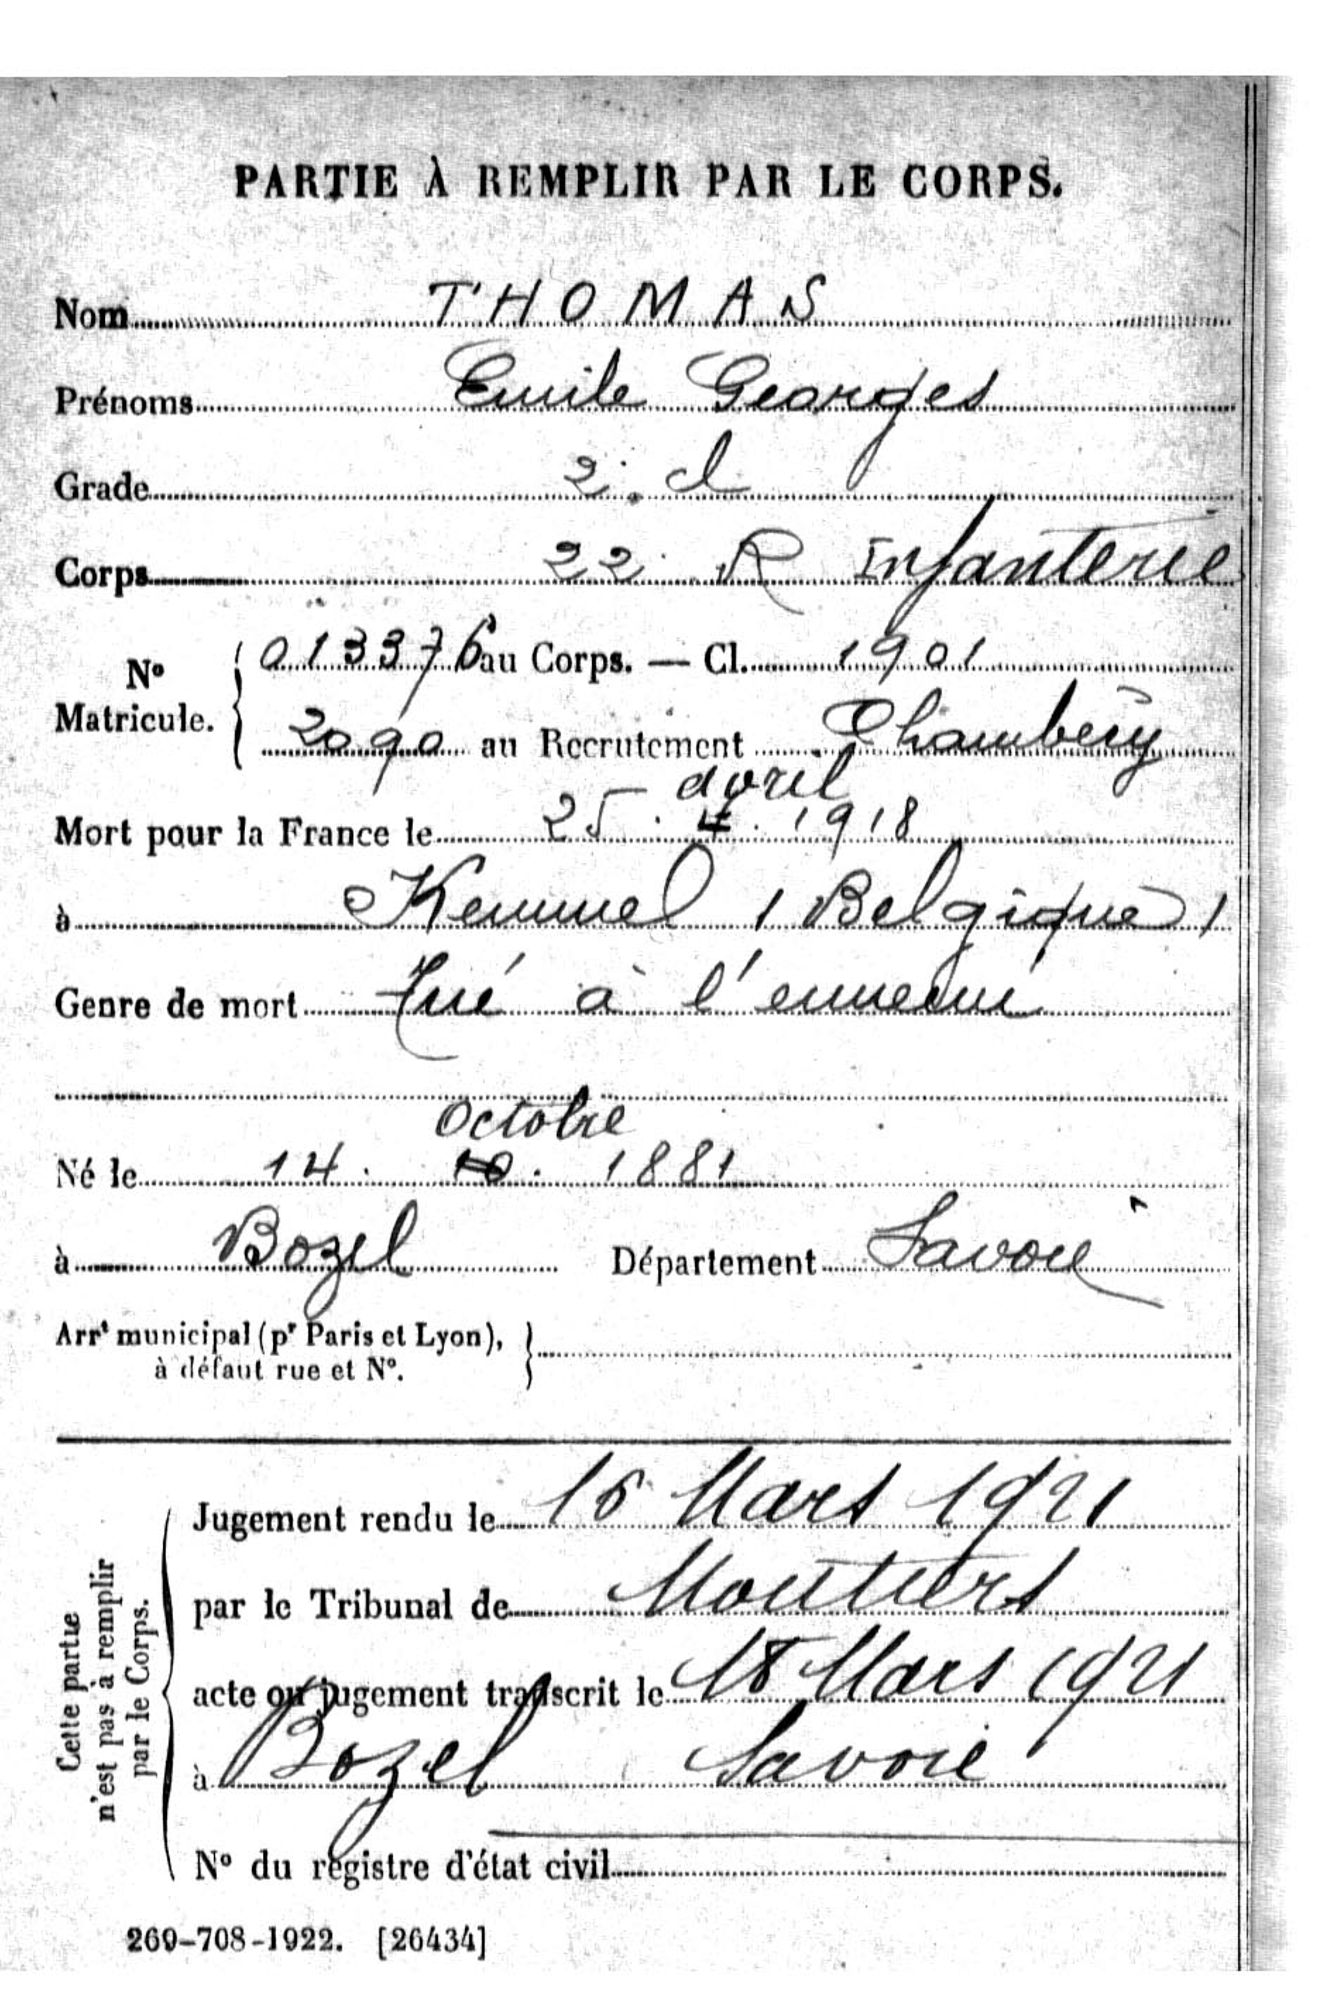 PARTIE À REMPLIR PAR LE CORPS.
Nom THOMAS
Prénoms Emile Georges
Grade 2. cl
Corps 22 R Infanterie
N° Matricule. 013376 au Corps. — Cl. 1901
2090 au Recrutement Chambéry
avril
Mort pour la France le 25. 4. 1918
à Kemmel (Belgique)
Genre de mort Tué à l'ennemi
Octobre
Né le 14. 10. 1881
à Bozel Département Savoie
Arrt municipal (pr Paris et Lyon),
à défaut rue et N°.
Cette partie
n'est pas à remplir
par le Corps.
Jugement rendu le 16 Mars 1921
par le Tribunal de Moutiers
acte ou jugement transcrit le 18 Mars 1921
à Bozel Savoie
N° du registre d'état civil
269-708-1922. [26434]